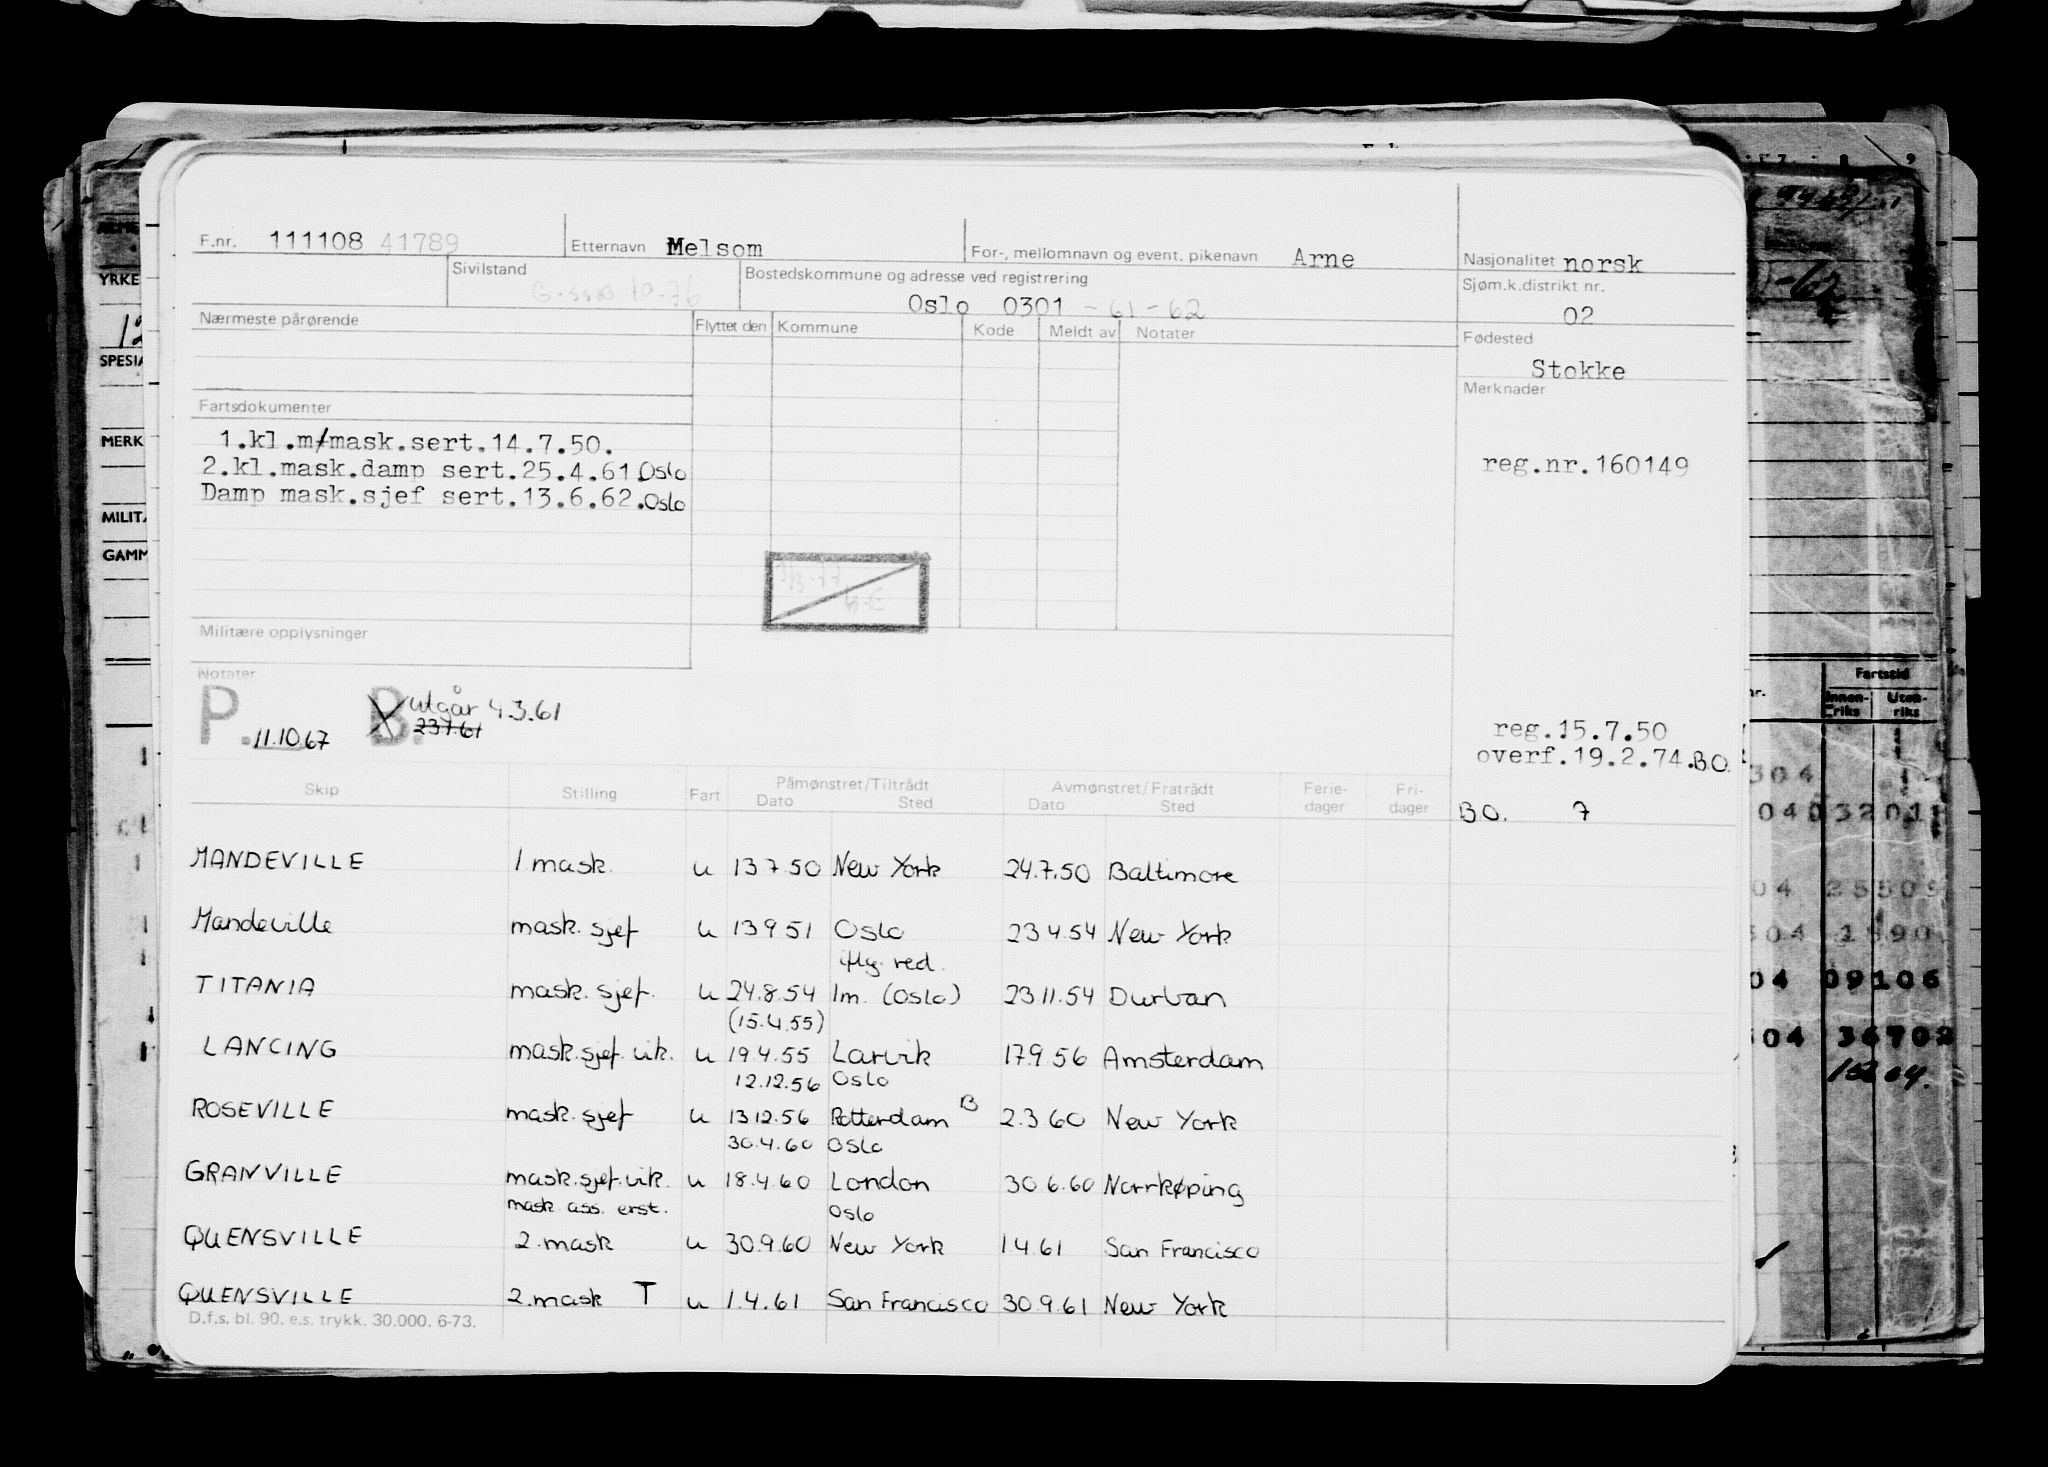 F.nr. 111108 41789 Etternavn Melsom For-, mellomnavn og event. pikenavn Arne Nasjonalitet norsk
Sivilstand Bostedskommune og adresse ved registrering Sjøm.k.distrikt nr.
Oslo 0301 - 61 - 62 02
Nærmeste pårørende Flyttet den Kommune Kode Meldt av Notater Fødested
Stokke
Merknader
Fartsdokumenter
1.kl.m/mask.sert.14.7.50.
2.kl.mask.damp sert.25.4.61.Oslo reg.nr.160149
Damp mask.sjef sert.13.6.62.Oslo
Militære opplysninger
Notater
P. 11.10.67 B. utgår 4.3.61
23.7.61
reg.15.7.50
overf.19.2.74.BO.
Skip Stilling Fart Påmønstret/Tiltrådt Avmønstret/Fratrådt Ferie- Fri-
Dato Sted Dato Sted dager dager BO. 7
MANDEVILLE 1 mask. u 13 7.50 New York 24.7.50 Baltimore
Mandeville mask. sjef u 13 9 51 Oslo 23 4.54 New York
iflg. red.
TITANIA mask. sjef. u 24.8.54 Im. (Oslo) 23 11.54 Durban
(15.4.55)
LANCING mask.sjef. vik. u 19.4.55 Larvik 17.9.56 Amsterdam
12.12.56 Oslo
ROSEVILLE mask. sjef u 13 12.56 Rotterdam B 2.3 60 New York
30.4.60 Oslo
GRANVILLE mask.sjef.vik. u 18.4.60 London 30.6.60 Norrkøping
mask ass. erst. Oslo
QUENSVILLE 2.mask u 30.9.60 New York 1.4.61 San Francisco
QUENSVILLE 2.mask T u 1.4.61 San Francisco 30.9.61 New York
D.f.s. bl. 90. e.s. trykk. 30.000. 6-73.
YRKE
SPESIA
MERK
MILITÆ
GAMM
Fartstid
Innen-riks Uten-riks